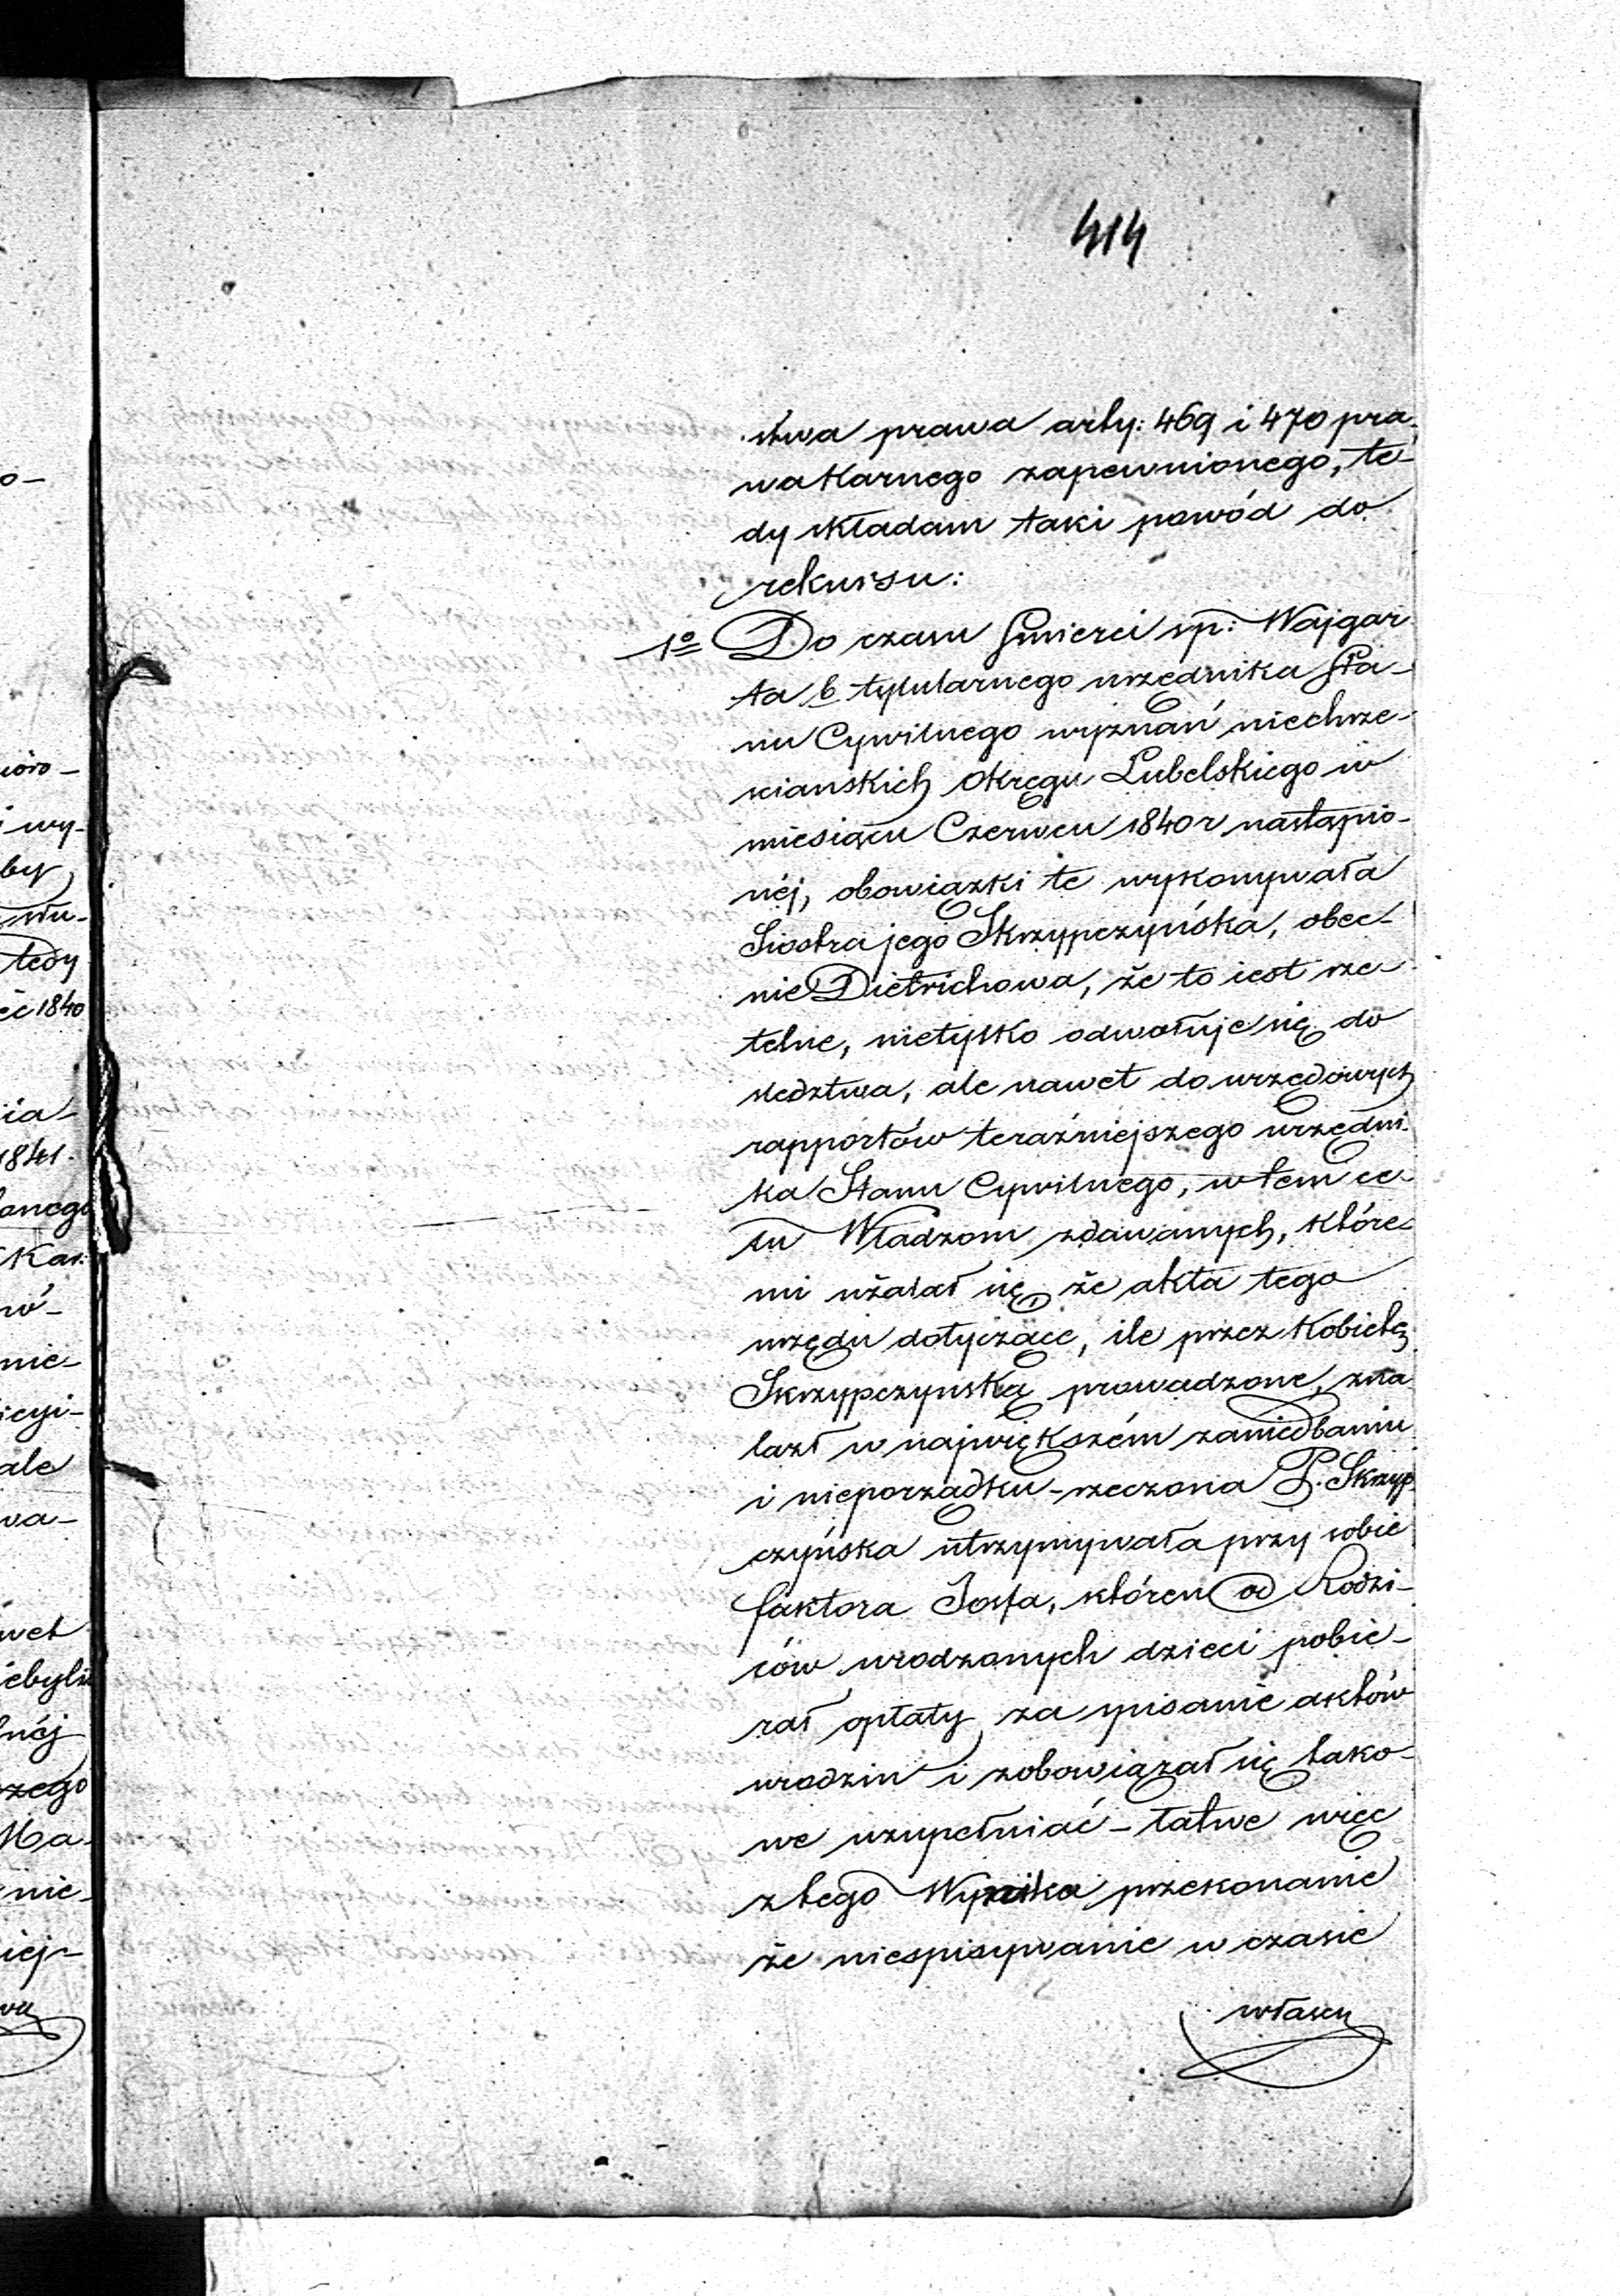 414
stwa prawa arty: 469 i 470 pra-
wa Karnego zapewnionego, te-
dy składam taki powód do
rekursu:
1º Do czasu śmierci sp: Wajgar
ta b tytularnego urzędnika Sta-
nu Cywilnego wyznań niechrze-
sciańskich Okręgu Lubelskiego w
miesiącu Czerwcu 1840 r nastąpio-
néj, obowiązki te wykonywała
Siostra jego Skrzypczyńska, obec-
nie Dietrichowa, że to iest rze-
telne, nietylko odwołuje się do
sledztwa, ale nawet do urzędowych
rapportów teraźniejszego urzędni-
ka Stanu Cywilnego, w tem ce-
lu Władzom zdawanych, które-
mi użalał się, że akta tego
urzędu dotyczące, ile przez Kobietę
Skrzypczynską prowadzone, zna
lazł w największém zaniedbaniu
i nieporządku – rzeczona P. Skrzyp
czyńska utrzymywała przy sobie
faktora Josfa, któren od Rodzi-
ców urodzonych dzieci pobie-
rał opłaty za spisanie aktów
urodzin i zobowiązał się tako-
we uzupełniać – łatwe więc
z tego Wynika przekonanie
że niespisywanie w czasie
własci
o-
i wy-
by
tedy
1840
ia-
1841.
anego
Kar:
wó-
nie-
ale
wa-
wet
zego
Ma-
nie-
iej-